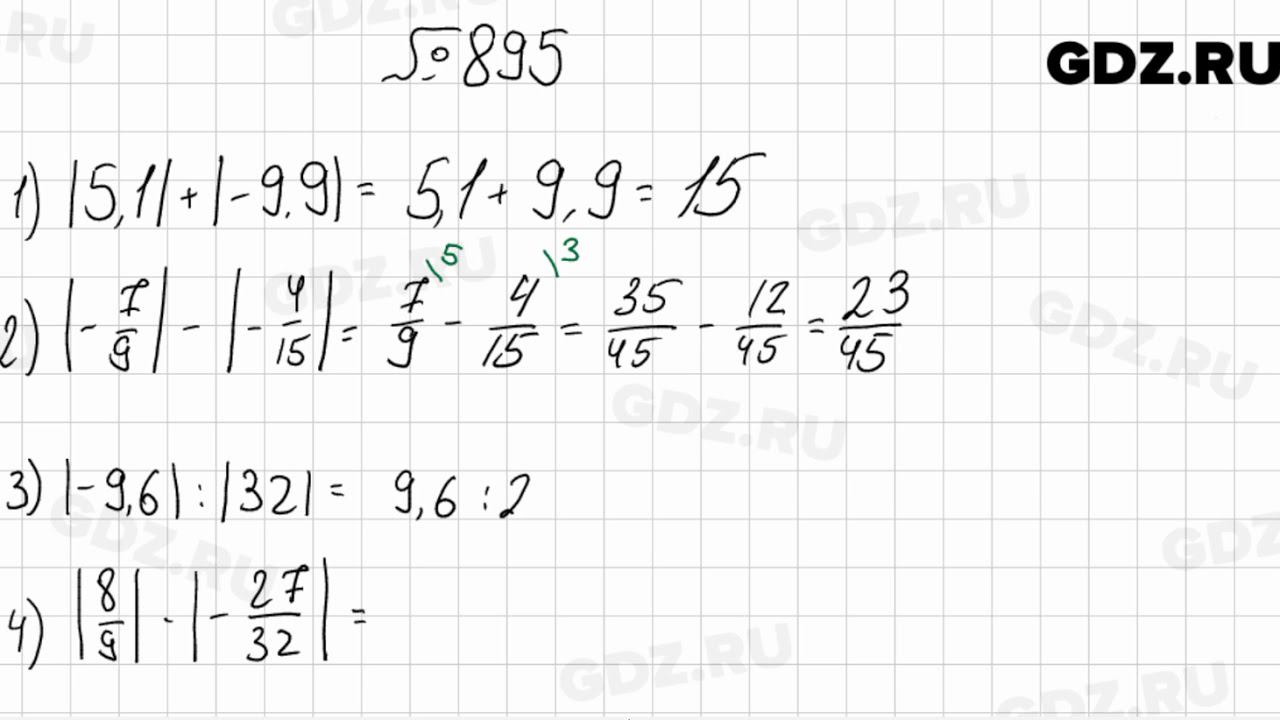 № 895
GDZ.RU
1) |5,1| + |-9,9| = 5,1 + 9,9 = 15
2) |-7/9| - |-4/15| = 7/9 \5 - 4/15 \3 = 35/45 - 12/45 = 23/45
3) |-9,6| : |32| = 9,6 : 2
4) |8/9| · |-27/32| =